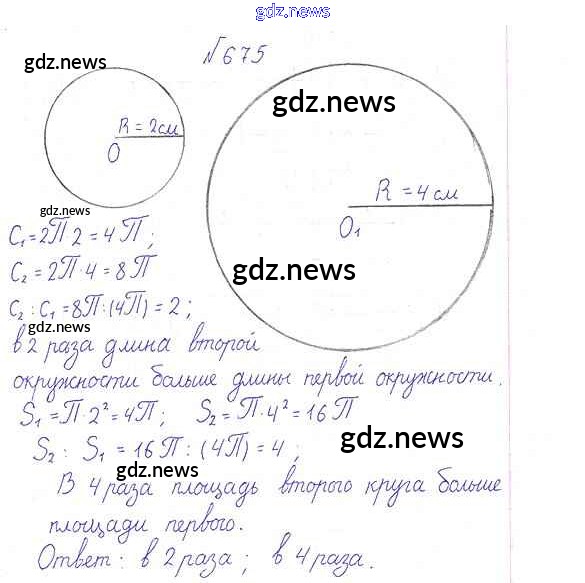 gdz.news
№675
gdz.news
gdz.news
R = 2см
O
R = 4 см
O₁
gdz.news
C₁ = 2П 2 = 4 П;
C₂ = 2П·4 = 8П
gdz.news
C₂ : C₁ = 8П:(4П) = 2;
gdz.news
в 2 раза длина второй
окружности больше длины первой окружности.
S₁ = П·2² = 4П; S₂ = П·4² = 16П
gdz.news
S₂ : S₁ = 16П : (4П) = 4;
gdz.news
В 4 раза площадь второго круга больше
площади первого.
Ответ: в 2 раза; в 4 раза.
gdz.news